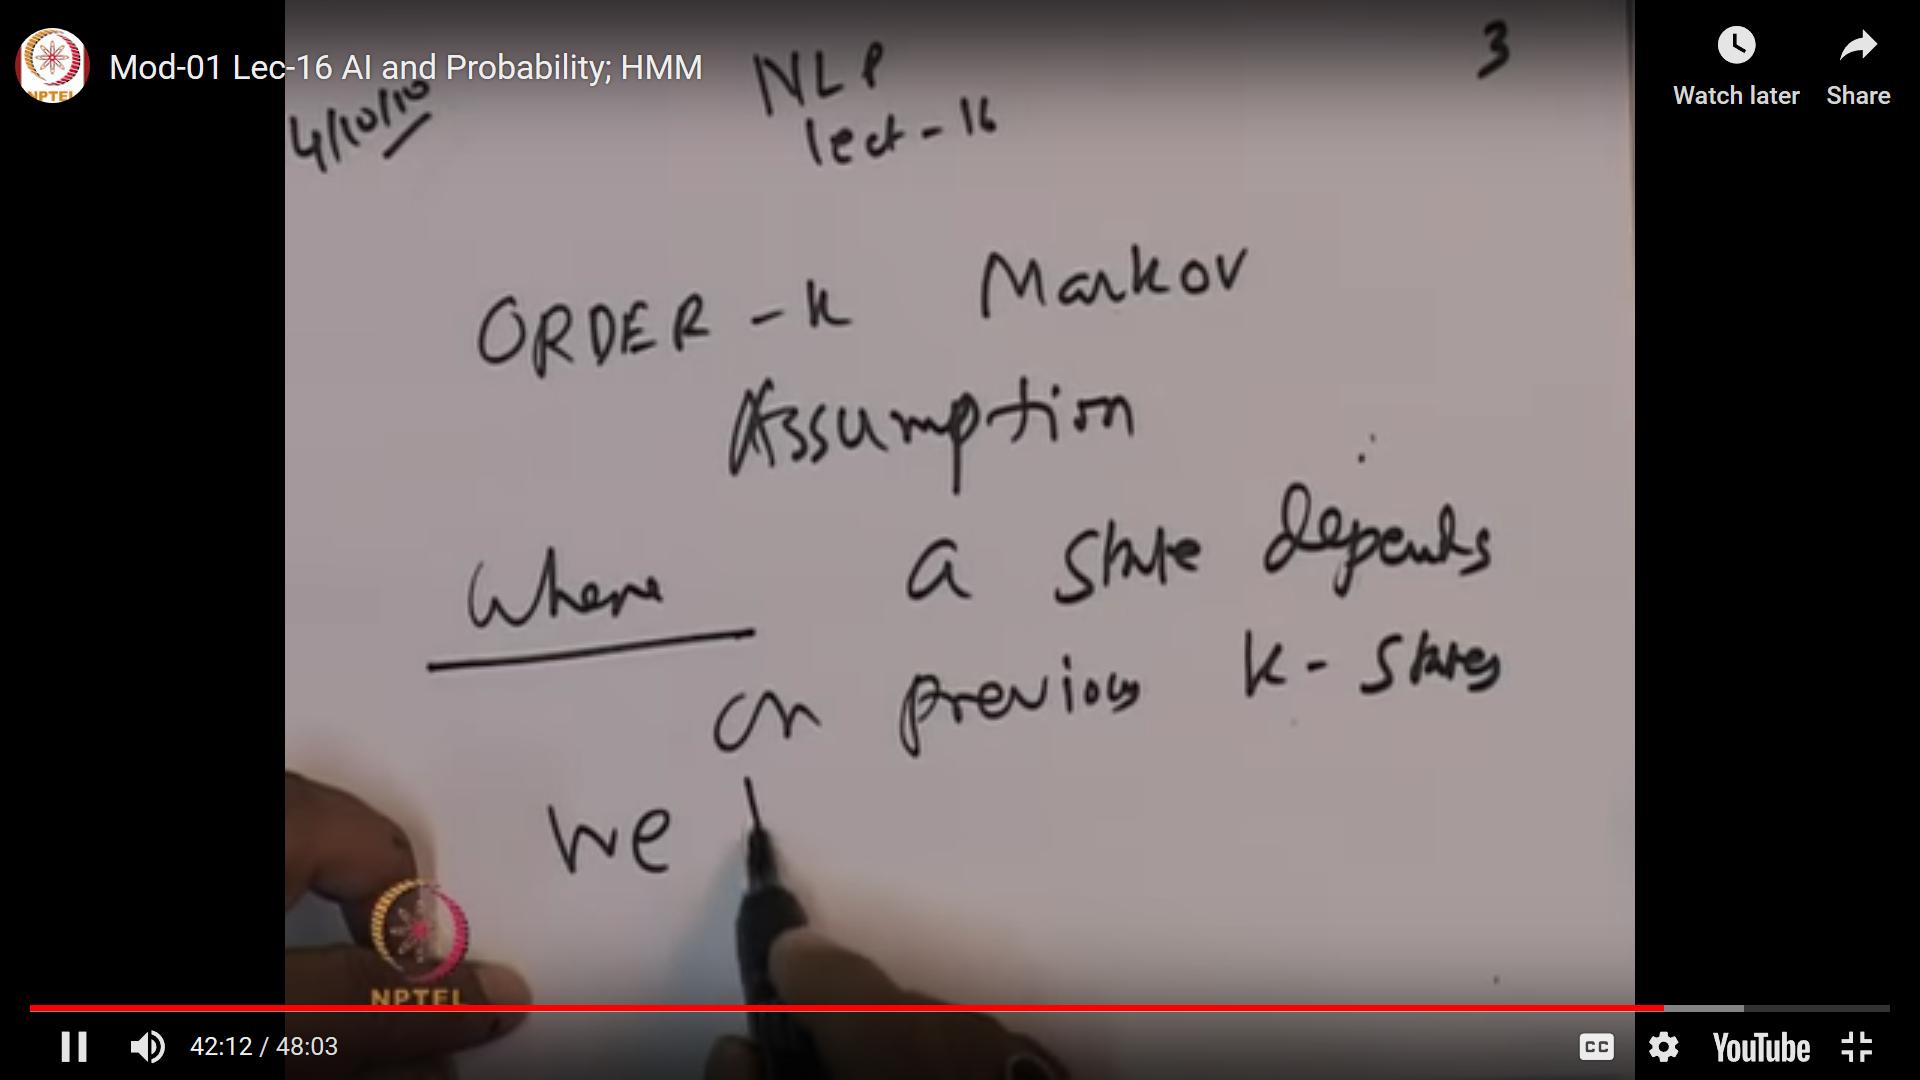 Mod-01 Lec-16 AI and Probability; HMM
Watch later
Share
NPTEL
4/10/10
NLP
lect-16
3
ORDER-k Markov
Assumption
Where a state depends
on previous k-states
we
NPTEL
42:12 / 48:03
CC
YouTube